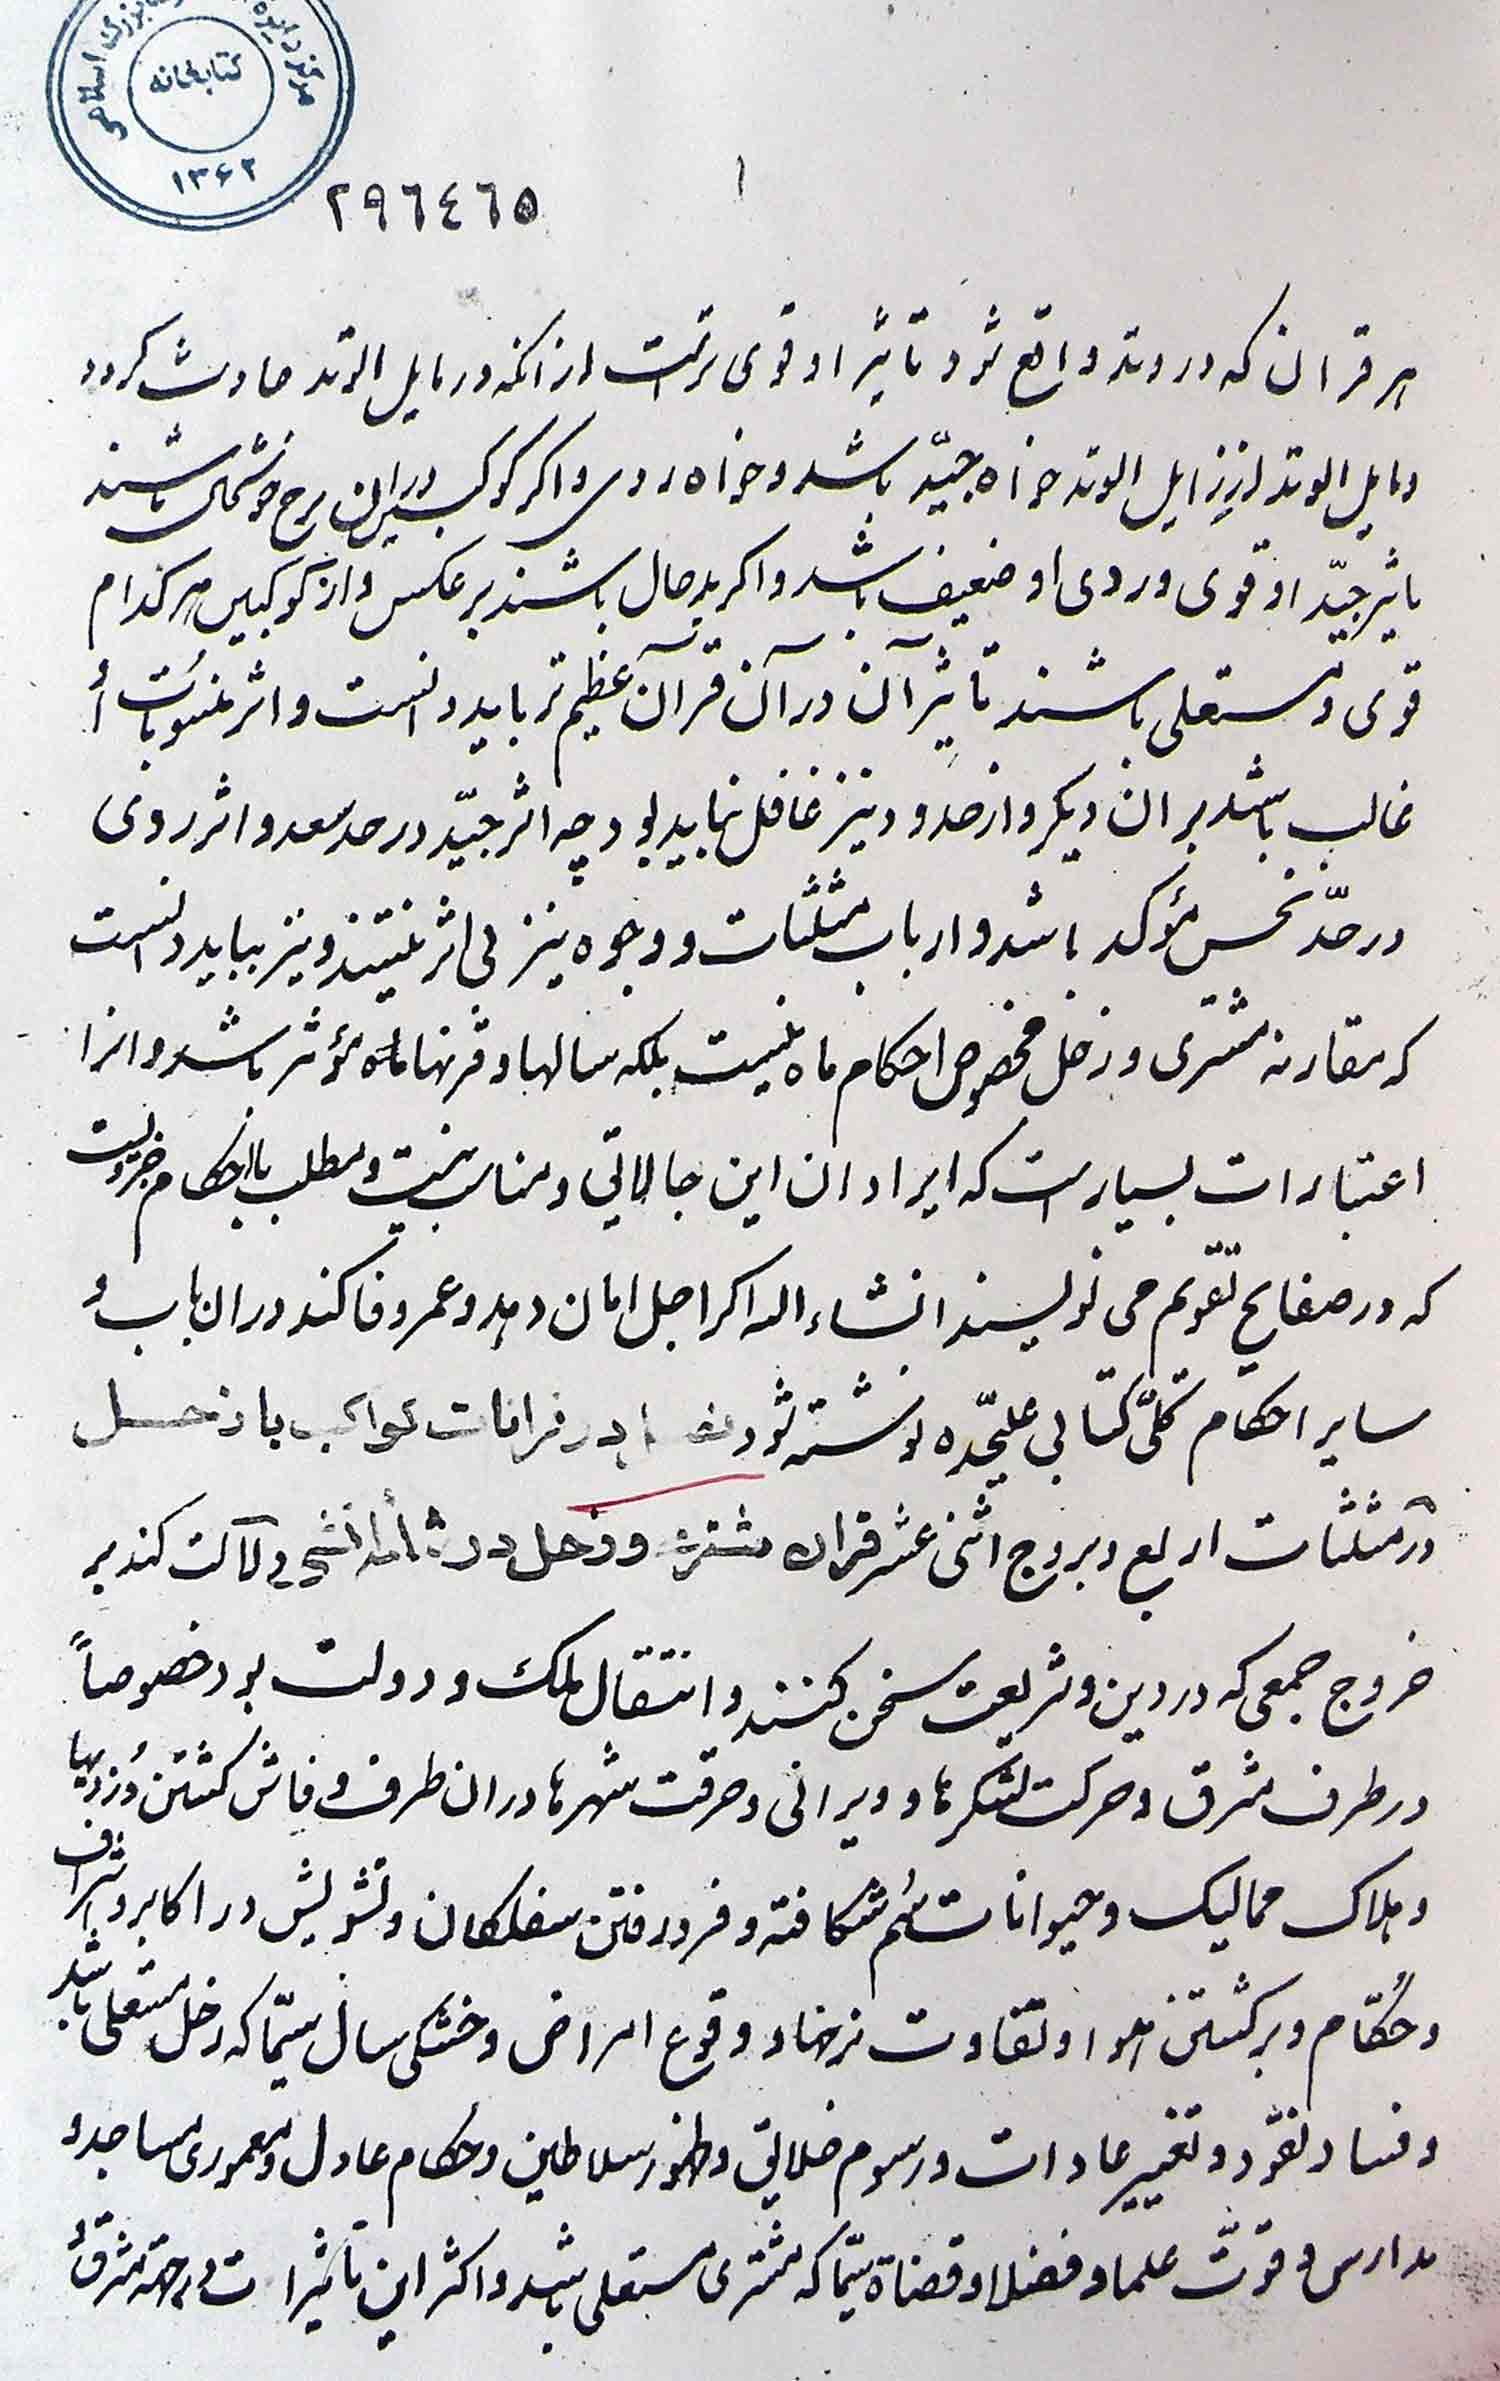 مرکز دایره المعارف بزرگ اسلامی
کتابخانه
۱۳۶۲
۱
۲۹٦٤٦٥
هر قران که در وتد واقع شود تأثیر او قوی ترست از آنکه در مایل الوتد حادث کردد
و مایل الوتد از زایل الوتد خواه جیّد باشد و خواه ردی و اکر کوکب در این برج خوشحال باشند
تاثیر جیّد او قوی و ردی او ضعیف باشد و اکر بدحال باشند برعکس و از کوکبین هر کدام
قوی و مستعلی باشند تأثیر آن در آن قرآن عظیم تر باید دانست و اثر منسوبات أ
غالب باشد بر ان دیکر و از حدود نیز غافل نباید بود چه اثر جیّد در حد سعد و اثر ردی
در حدّ نحس مؤکد باشد و ارباب مثلثات و وجوه نیز بی اثر نیستند و نیز بباید دانست
که مقارنه مشتری و زحل مخصوص احکام ماه نیست بلکه سالها و قرنها مؤثر باشد و انرا
اعتبارات بسیارست که ایراد ان این جا لایق و مناسب نیست و مطلب با احکام جزویست
که در صفایح تقویم می نویسند انشاء الله اکر اجل امان دهد و عمر وفا کند در ان باب و
سایر احکام کلّی کتابی علیحّده نوشته شود در قرانات کواکب با زحل
در مثلثات اربع و بروج اثنی عشر قران مشتری و زحل در دلالت کند بر
خروج جمعی که در دین و شریعت سخن کنند و انتقال ملک و دولت بود خصوصاً
در طرف مشرق و حرکت لشکرها و ویرانی و حرقت شهرها در ان طرف و فاش کشتن دُزدیها
و هلاک ممالیک و حیوانات سُم شکافته و فرو رفتن سفلکان و تشویش در اکابر و اشراف
و حُکّام و برکشتن هوا و تفاوت نرخها و وقوع امراض و خشکی سال سیّما که زحل مستعلی باشد
و فساد نقود و تغییر عادات و رسوم خلایق و ظهور سلاطین و حکام عادل و معموری مساجد و
مدارس و قوّت علما و فضلا و قضاة سیّما که مشتری مستعلی باشد و اکثر این تأثیرات در جهة مشرق